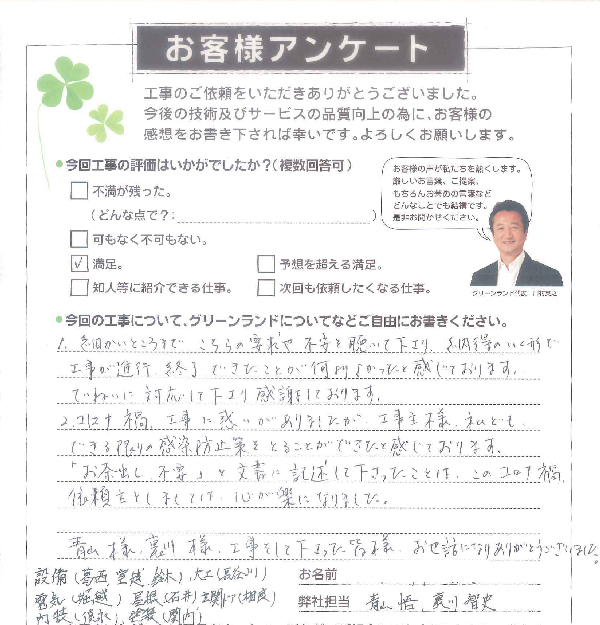 お客様アンケート
工事のご依頼をいただきありがとうございました。
今後の技術及びサービスの品質向上の為に、お客様の
感想をお書き下されば幸いです。よろしくお願いします。
●今回工事の評価はいかがでしたか？（複数回答可）
不満が残った。
（どんな点で？: ）
可もなく不可もない。
✓ 満足。
予想を超える満足。
知人等に紹介できる仕事。
次回も依頼したくなる仕事。
お客様の声が私たちを熱くします。
厳しいお言葉、ご提案、
もちろんお褒めの言葉など
どんなことでも結構です。
是非お聞かせください。
グリーンランド代表
●今回の工事について、グリーンランドについてなどご自由にお書きください。
1. 細かいところまで こちらの要求や 不安を聴いて下さり、納得のいく形で
工事が進行、終了できたことが何よりよかったと感じております。
ていねいに 対応して下さり感謝しております。
2. コロナ禍、工事に惑いがありましたが、工事主様、私ども
できる限りの感染防止策をとることができたと感じております。
「お茶出し不要」と文書に記述して下さったことは、このコロナ禍、
依頼主としましては、心が楽になりました。
青山様、裏川様、工事をして下さった皆様、お世話になりありがとうございました。
設備（葛西 室銭 鈴木）、大工（長谷川）
電気（堀越） 屋根（石井）玄関ドア（相良）
内装（清水）、塗装（関内）
お名前
弊社担当 青山 悟、裏川 智史